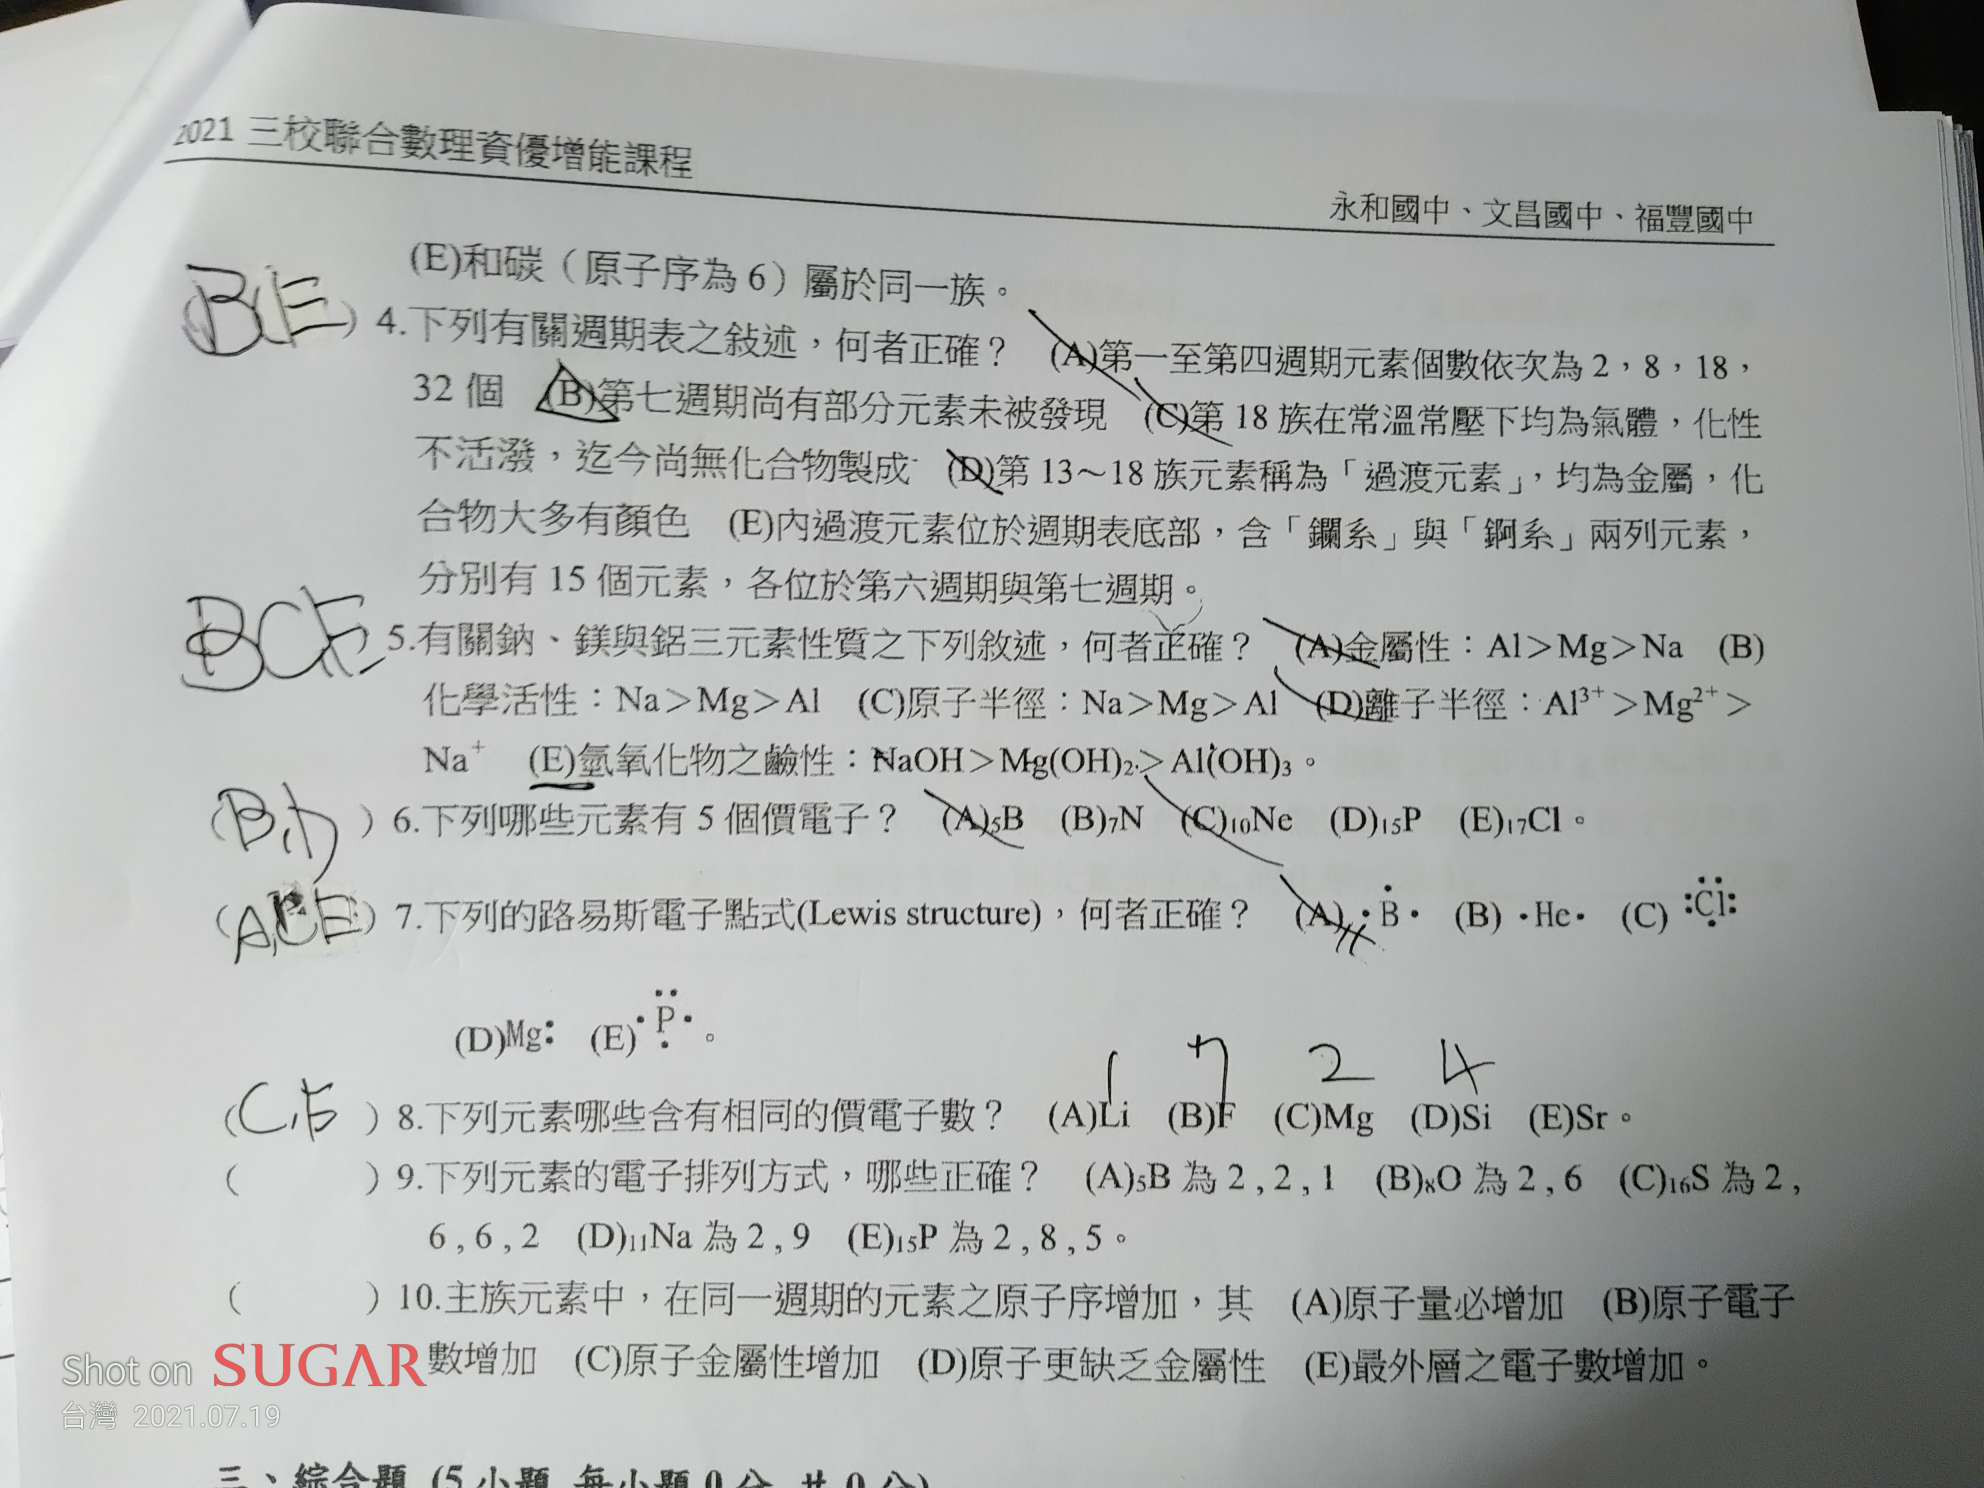 2021 三校聯合數理資優增能課程
永和國中、文昌國中、福豐國中
(E)和碳（原子序為 6）屬於同一族。
(BE) 4.下列有關週期表之敍述，何者正確？ (A)第一至第四週期元素個數依次為 2，8，18，
32 個 (B)第七週期尚有部分元素未被發現 (C)第 18 族在常溫常壓下均為氣體，化性
不活潑，迄今尚無化合物製成 (D)第 13～18 族元素稱為「過渡元素」，均為金屬，化
合物大多有顏色 (E)內過渡元素位於週期表底部，含「鑭系」與「錒系」兩列元素，
分別有 15 個元素，各位於第六週期與第七週期。
BCE 5.有關鈉、鎂與鋁三元素性質之下列敘述，何者正確？ (A)金屬性：Al＞Mg＞Na (B)
化學活性：Na＞Mg＞Al (C)原子半徑：Na＞Mg＞Al (D)離子半徑：Al³⁺＞Mg²⁺＞
Na⁺ (E)氫氧化物之鹼性：NaOH＞Mg(OH)₂＞Al(OH)₃。
(B,D) 6.下列哪些元素有 5 個價電子？ (A)₅B (B)₇N (C)₁₀Ne (D)₁₅P (E)₁₇Cl。
(A,CE) 7.下列的路易斯電子點式(Lewis structure)，何者正確？ (A) ·B· (B) ·He· (C) :Cl:
(D)Mg: (E)·P·。
1 7 2 4
(C,E) 8.下列元素哪些含有相同的價電子數？ (A)Li (B)F (C)Mg (D)Si (E)Sr。
( ) 9.下列元素的電子排列方式，哪些正確？ (A)₅B 為 2 , 2 , 1 (B)₈O 為 2 , 6 (C)₁₆S 為 2 ,
6 , 6 , 2 (D)₁₁Na 為 2 , 9 (E)₁₅P 為 2 , 8 , 5。
( ) 10.主族元素中，在同一週期的元素之原子序增加，其 (A)原子量必增加 (B)原子電子
數增加 (C)原子金屬性增加 (D)原子更缺乏金屬性 (E)最外層之電子數增加。
Shot on SUGAR
台灣 2021.07.19
三、綜合題 (5 小題 每小題 0 分 共 0 分)